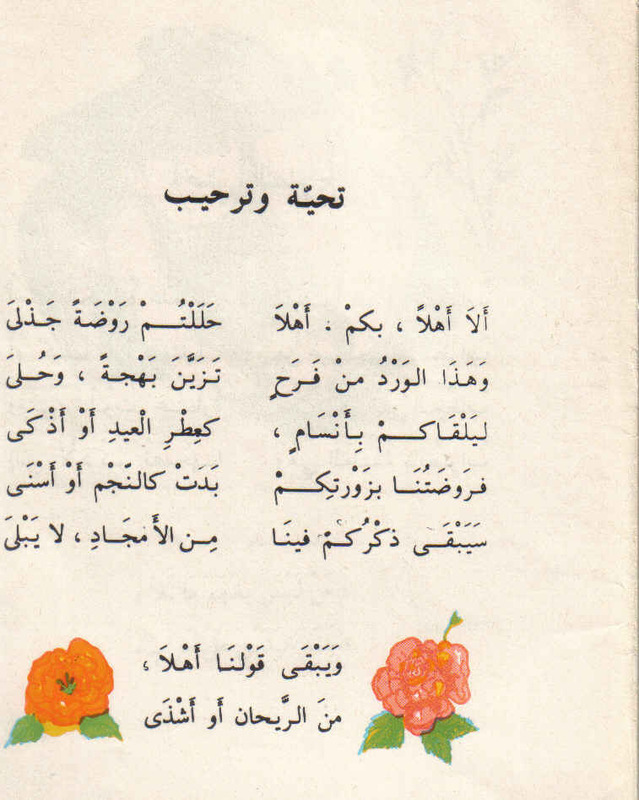 تحيّة وترحيب
أَلاَ أَهْلاً ، بكمْ . أَهْلاَ حَلَلْتُـــمْ رَوْضَةً جَـذْلىَ
وَهَـذَا الـوَرْدُ منْ فَـرَحٍ تَـزَيَّنَ بَهْجـةً ، وَحُـلىَ
ليَلْقَـاكـــمْ بِـأَنْسَـامٍ ، كعِطْرِ الْعيدِ أَوْ أَذْكَـى
فـروَضَتُنَــا بزَوْرتكِـــمْ بَدَتْ كالنّجْم أَوْ أَسْنَـى
سَيَبْقَــى ذكْرُكـمْ فينَـا مِـن الأَمْجَـادِ ، لا يَبْلىَ
وَيَبْقَـى قَوْلنَـا أَهْـلاَ ،
منَ الرَّيحان أَو أَشْذَى